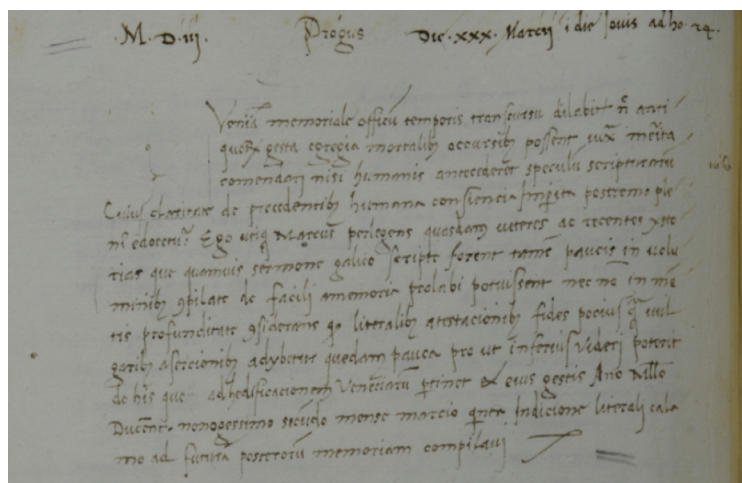 .M.D.iij. Progus Die .xxx. Marcij i die Jouis ad ho. 24.
Veniā memoriale officiū temporis transcursu dilabit' nō anti
gesta egregia mortalibȝ possent iuxͣ mēta
comendari nisi humanis antecederet speculū scripturarū
Cuius claritate de precedentibȝ humana consiencia postremo ple
nī edocetur. Ego utiqȝ Marcus perlegens quasdam ueteres ac recentes ysto
rias que quamuis sermone galico scripte forent tamē paucis in uolu
minibȝ 9pilate de facili amemoria prolabi potuissent nec nō in mē
tis profunditate 9siderans qȝ literalibȝ atestacionibȝ fides pocius q̄ uul
garibȝ asercionibȝ adybetur quedam pauca pro ut inferius videri poterit
de his que ad hedificacionem Veneciarū ꝑtinet & eius gestis Año Millo
Ducente. nonogessimo secūdo mense marcio qinta Indicione literali cala
mo ad futurā posterorū memoriam compilaui